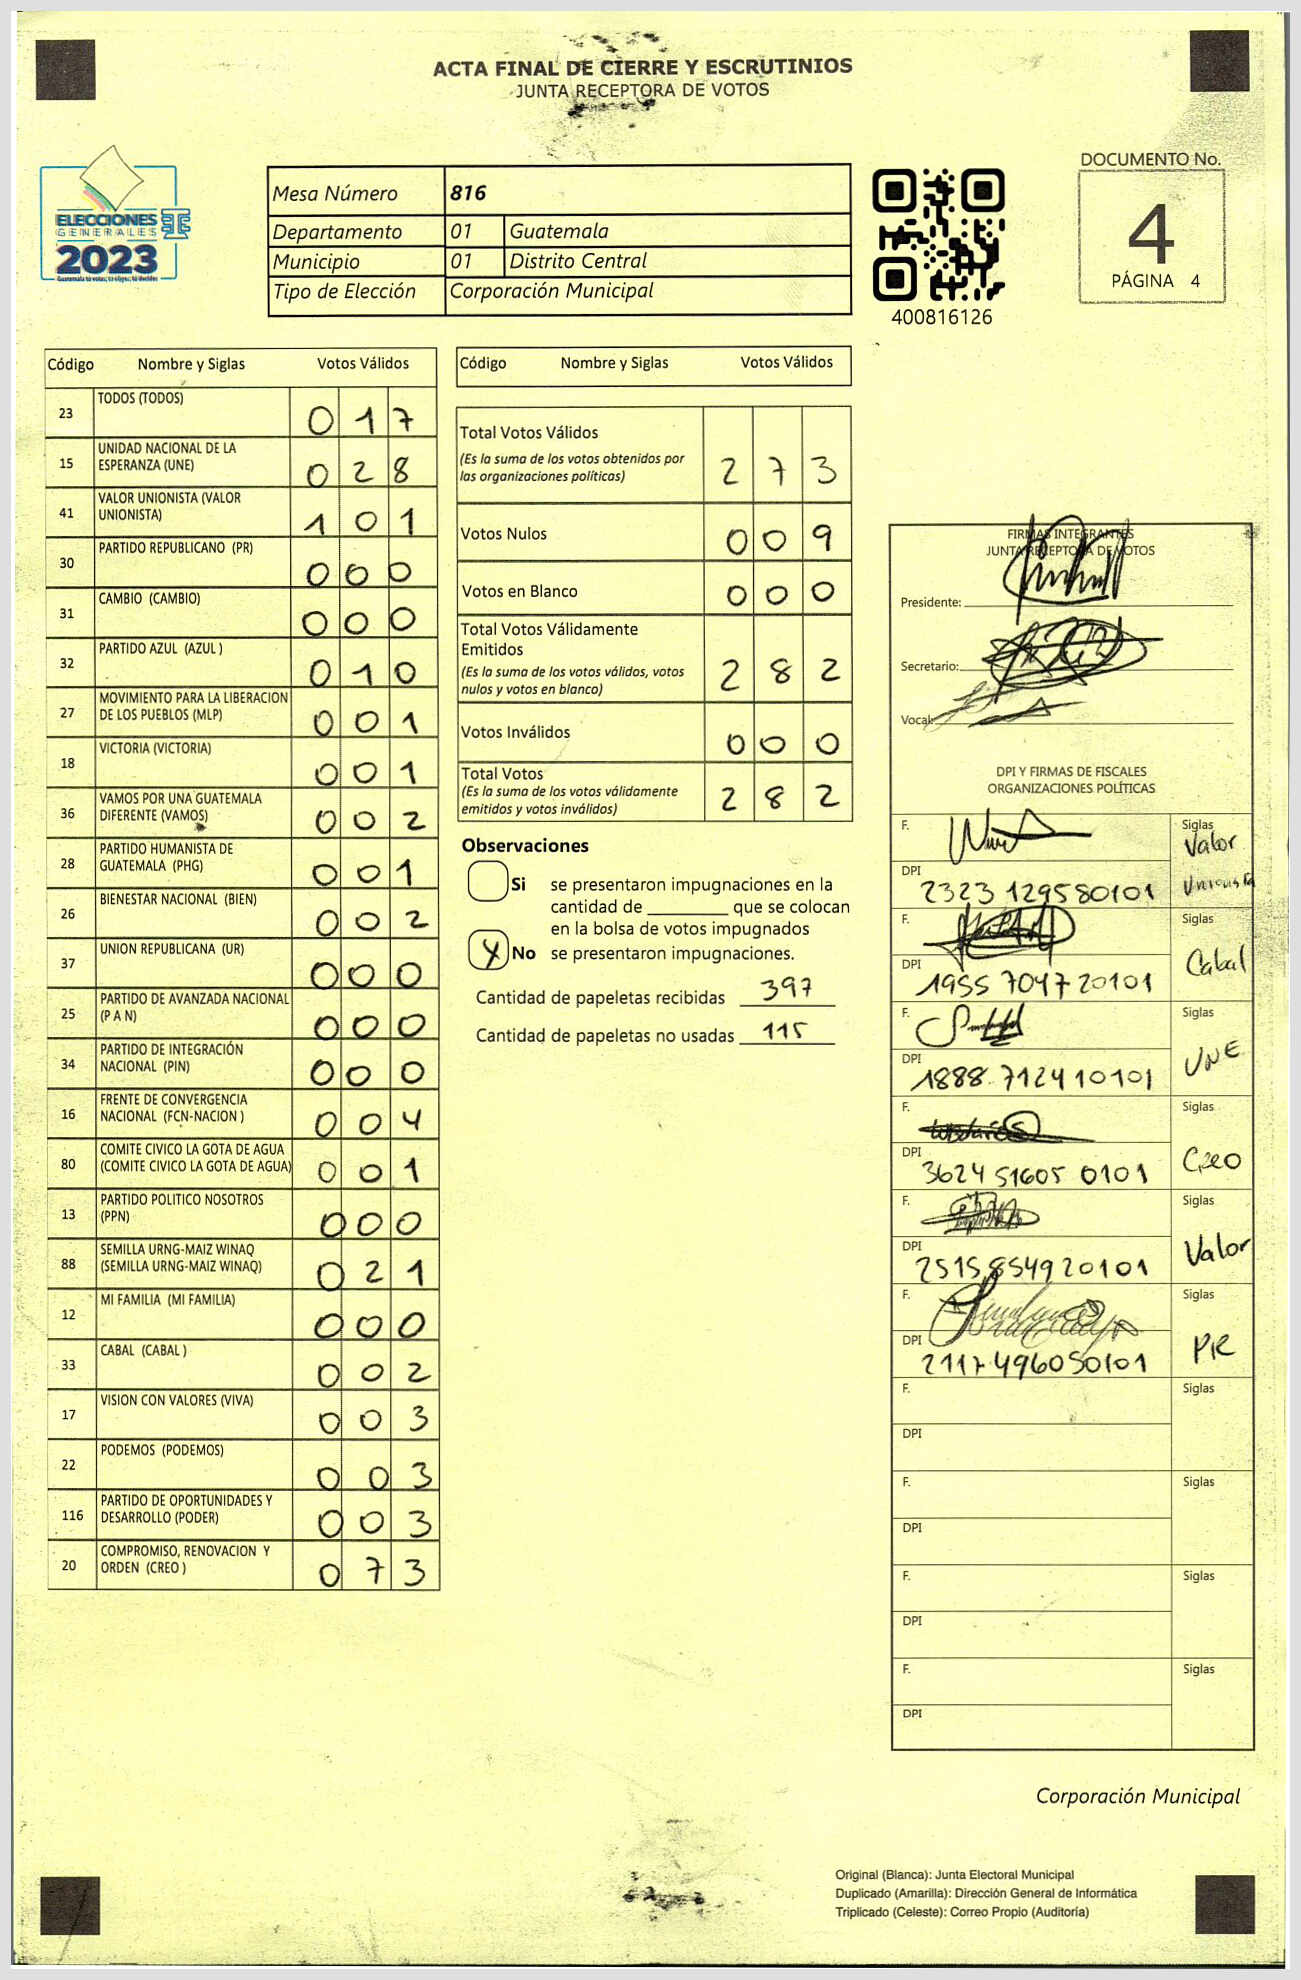 ACTA FINAL DE CIERRE Y ESCRUTINIOS
JUNTA RECEPTORA DE VOTOS
ELECCIONES
GENERALES
2023
Mesa Número 816
Departamento 01 Guatemala
Municipio 01 Distrito Central
Tipo de Elección Corporación Municipal
400816126
DOCUMENTO No.
4
PÁGINA 4
Código Nombre y Siglas Votos Válidos
23 TODOS (TODOS) 0 1 7
15 UNIDAD NACIONAL DE LA ESPERANZA (UNE) 0 2 8
41 VALOR UNIONISTA (VALOR UNIONISTA) 1 0 1
30 PARTIDO REPUBLICANO (PR) 0 0 0
31 CAMBIO (CAMBIO) 0 0 0
32 PARTIDO AZUL (AZUL ) 0 1 0
27 MOVIMIENTO PARA LA LIBERACION DE LOS PUEBLOS (MLP) 0 0 1
18 VICTORIA (VICTORIA) 0 0 1
36 VAMOS POR UNA GUATEMALA DIFERENTE (VAMOS) 0 0 2
28 PARTIDO HUMANISTA DE GUATEMALA (PHG) 0 0 1
26 BIENESTAR NACIONAL (BIEN) 0 0 2
37 UNION REPUBLICANA (UR) 0 0 0
25 PARTIDO DE AVANZADA NACIONAL (P A N) 0 0 0
34 PARTIDO DE INTEGRACIÓN NACIONAL (PIN) 0 0 0
16 FRENTE DE CONVERGENCIA NACIONAL (FCN-NACION ) 0 0 4
80 COMITE CIVICO LA GOTA DE AGUA (COMITE CIVICO LA GOTA DE AGUA) 0 0 1
13 PARTIDO POLITICO NOSOTROS (PPN) 0 0 0
88 SEMILLA URNG-MAIZ WINAQ (SEMILLA URNG-MAIZ WINAQ) 0 2 1
12 MI FAMILIA (MI FAMILIA) 0 0 0
33 CABAL (CABAL ) 0 0 2
17 VISION CON VALORES (VIVA) 0 0 3
22 PODEMOS (PODEMOS) 0 0 3
116 PARTIDO DE OPORTUNIDADES Y DESARROLLO (PODER) 0 0 3
20 COMPROMISO, RENOVACION Y ORDEN (CREO ) 0 7 3
Código Nombre y Siglas Votos Válidos
Total Votos Válidos
(Es la suma de los votos obtenidos por las organizaciones políticas) 2 7 3
Votos Nulos 0 0 9
Votos en Blanco 0 0 0
Total Votos Válidamente Emitidos
(Es la suma de los votos válidos, votos nulos y votos en blanco) 2 8 2
Votos Inválidos 0 0 0
Total Votos
(Es la suma de los votos válidamente emitidos y votos inválidos) 2 8 2
Observaciones
Si se presentaron impugnaciones en la
cantidad de ________ que se colocan
en la bolsa de votos impugnados
X No se presentaron impugnaciones.
Cantidad de papeletas recibidas 397
Cantidad de papeletas no usadas 115
FIRMAS INTEGRANTES
JUNTA RECEPTORA DE VOTOS
Presidente:
Secretario:
Vocal:
DPI Y FIRMAS DE FISCALES
ORGANIZACIONES POLÍTICAS
F. Siglas Valor Unionista
DPI 2323 129580101
F. Siglas Cabal
DPI 1955 704720101
F. Siglas UNE
DPI 1888 712410101
F. Siglas Creo
DPI 3624 51605 0101
F. Siglas Valor
DPI 2515 854920101
F. Siglas PR
DPI 2117 496050101
F. Siglas
DPI
F. Siglas
DPI
F. Siglas
DPI
F. Siglas
DPI
Corporación Municipal
Original (Blanca): Junta Electoral Municipal
Duplicado (Amarilla): Dirección General de Informática
Triplicado (Celeste): Correo Propio (Auditoría)